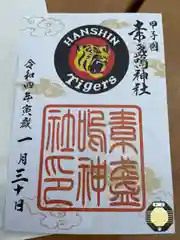 甲子園
素盞嗚神社
HANSHIN
Tigers
令和四年寅歳
一月三十日
素盞
嗚神
社印